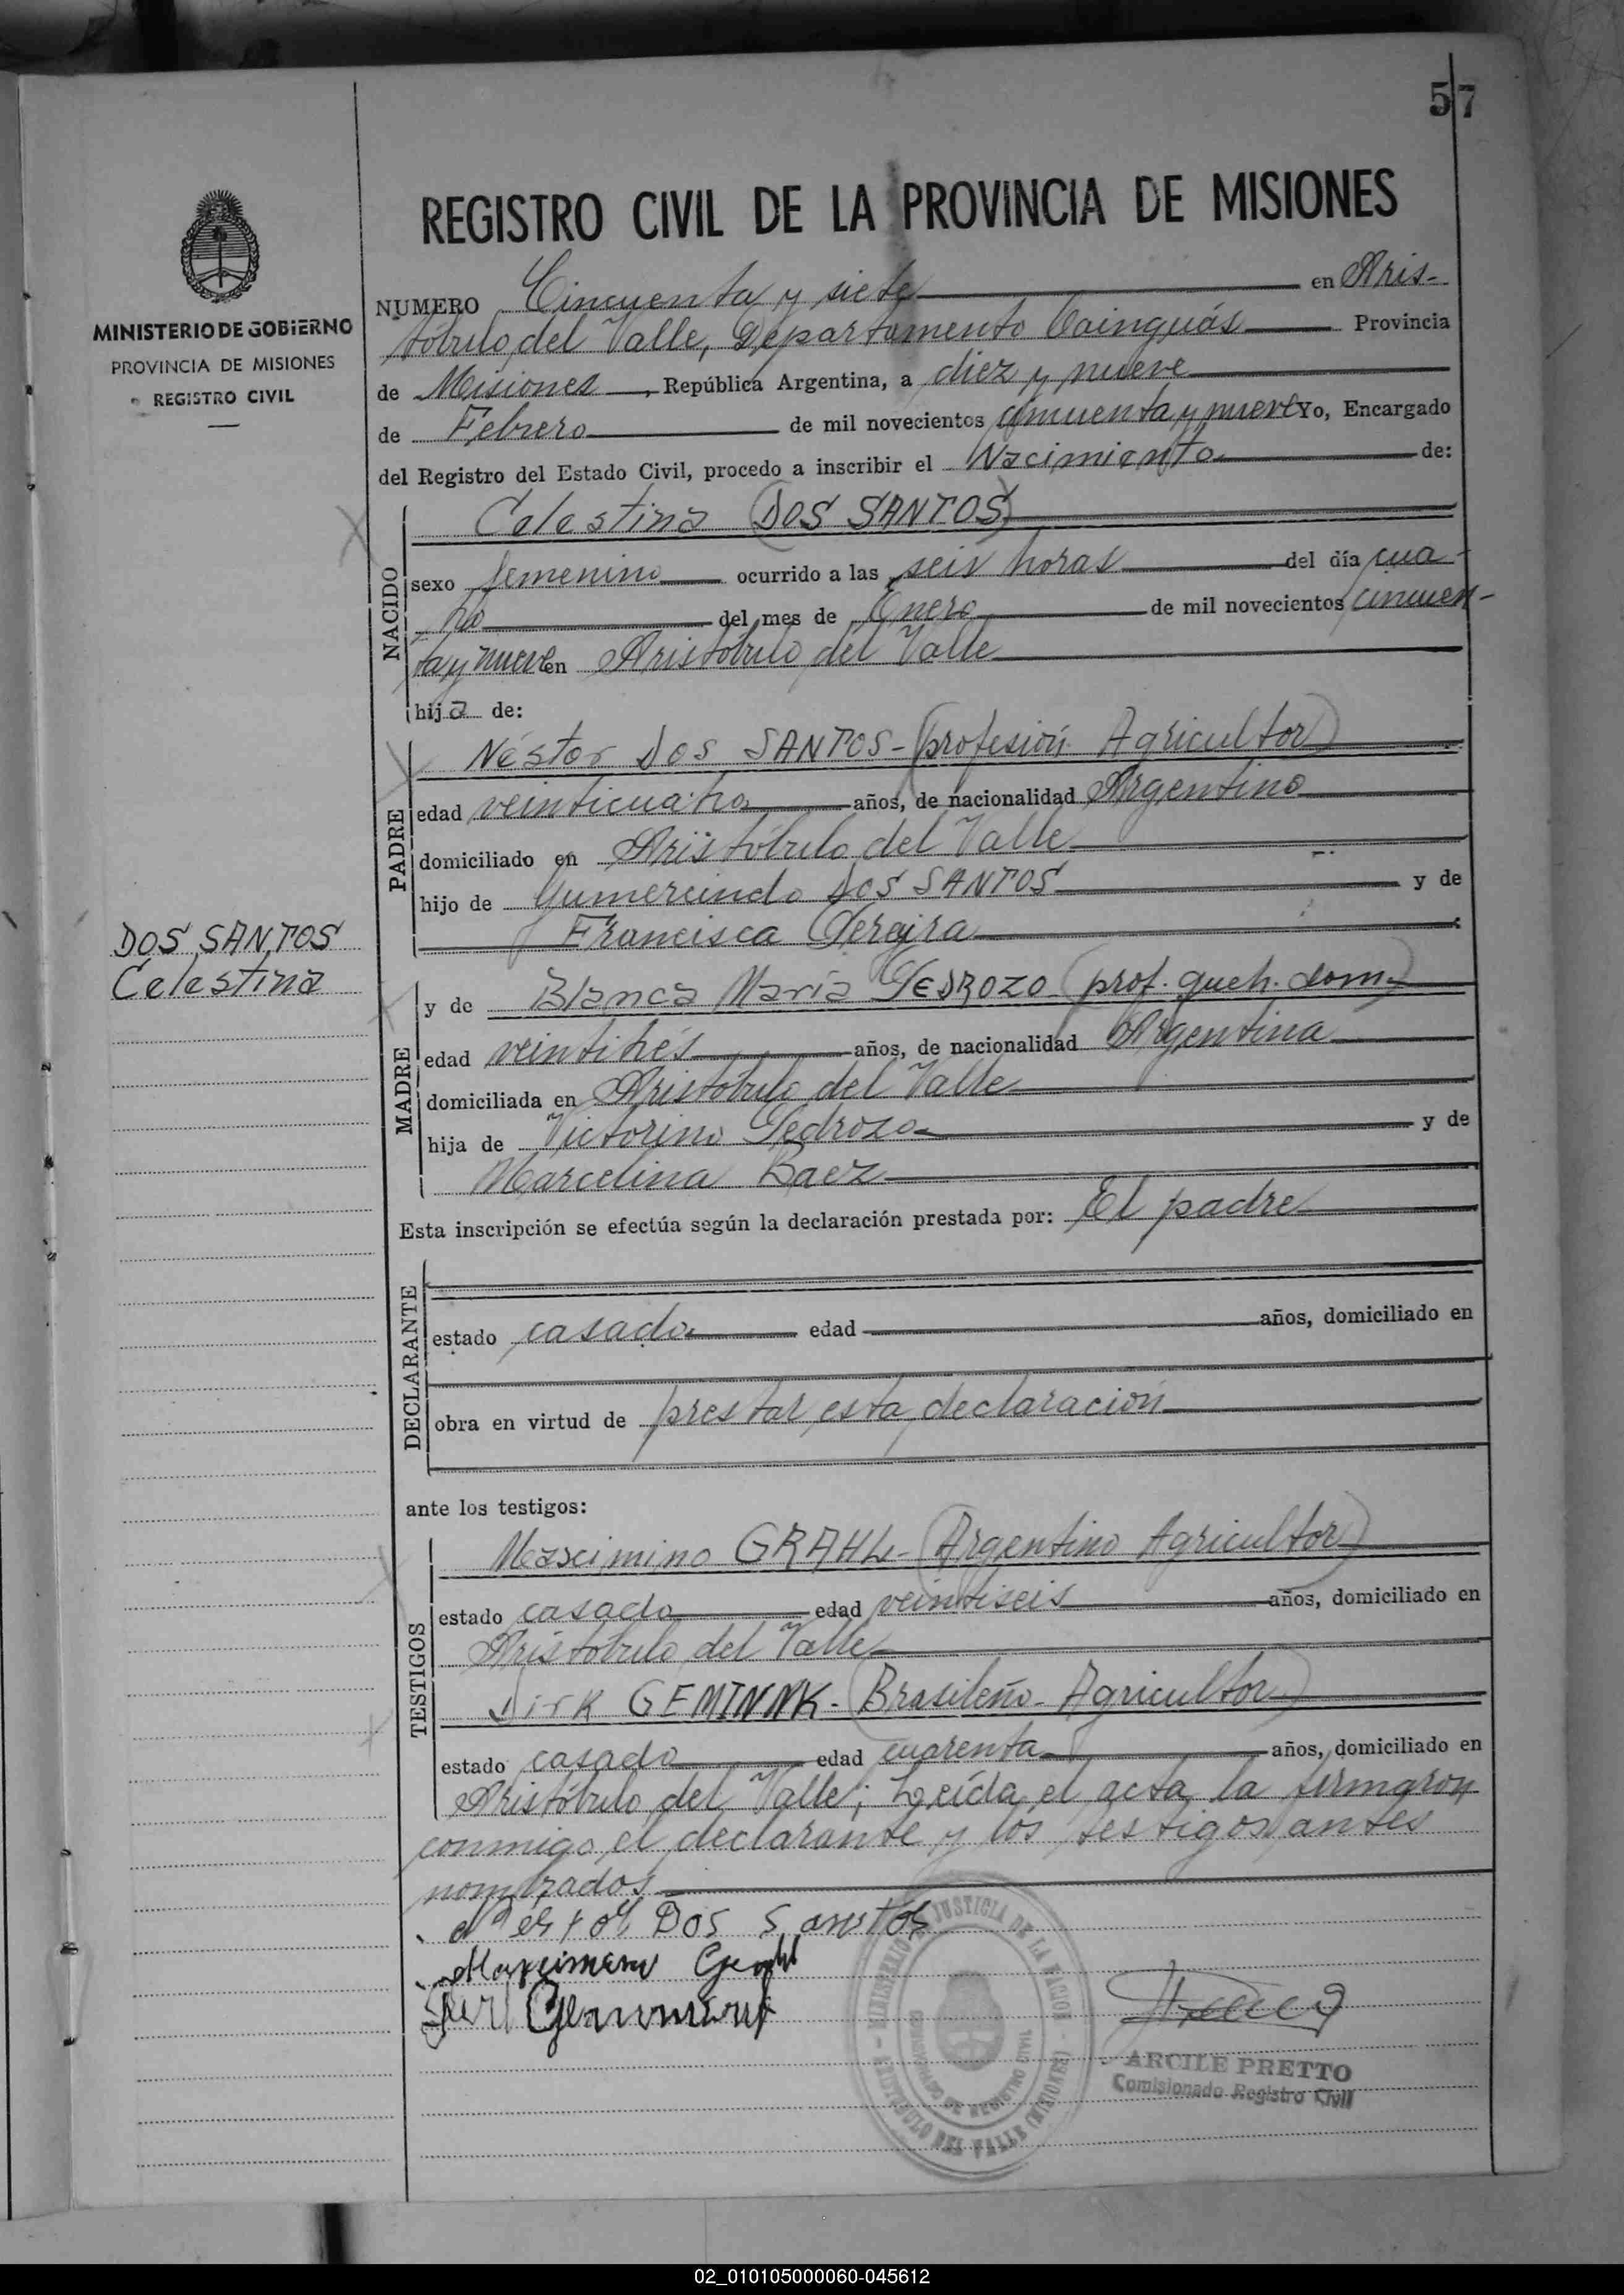 57
REGISTRO CIVIL DE LA PROVINCIA DE MISIONES
MINISTERIO DE GOBIERNO
PROVINCIA DE MISIONES
REGISTRO CIVIL
NUMERO Cincuenta y siete en Aris-
tóbulo del Valle, Departamento Cainguás Provincia
de Misiones, República Argentina, a diez y nueve
de Febrero de mil novecientos cincuenta y nueve Yo, Encargado
del Registro del Estado Civil, procedo a inscribir el Nacimiento de:
NACIDO
Celestina (DOS SANTOS)
sexo femenino ocurrido a las seis horas del día cua-
tro del mes de Enero de mil novecientos cincuen-
ta y nueve en Aristóbulo del Valle
hija de:
PADRE
Néstor DOS SANTOS-(profesión Agricultor)
edad veinticuatro años, de nacionalidad Argentino
domiciliado en Aristóbulo del Valle
hijo de Gumercindo DOS SANTOS y de
Francisca Pereira
DOS SANTOS
Celestina
MADRE
y de Blanca María PEDROZO (prof. queh. dom.)
edad veintitrés años, de nacionalidad Argentina
domiciliada en Aristóbulo del Valle
hija de Victorino Pedrozo y de
Marcelina Baez
Esta inscripción se efectúa según la declaración prestada por: El padre
DECLARANTE
estado casado edad años, domiciliado en
obra en virtud de prestar esta declaración
ante los testigos:
TESTIGOS
Mascimino GRAHL-(Argentino Agricultor)
estado casado edad veintiseis años, domiciliado en
Aristóbulo del Valle
Dirk GEMINNK-(Brasileño-Agricultor)
estado casado edad cuarenta años, domiciliado en
Aristóbulo del Valle; Leída el acta la firmaron
conmigo el declarante y los testigos antes
nombrados
DOS Santos
MINISTERIO DE JUSTICIA DE LA NACION
REGISTRO CIVIL
ARISTOBULO DEL VALLE (MISIONES)
ARCILE PRETTO
Comisionado Registro Civil
02_010105000060-045612